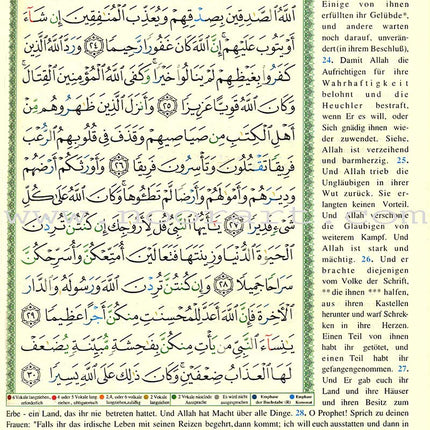 ٱللَّهُ ٱلصَّـٰدِقِينَ بِصِدْقِهِمْ وَيُعَذِّبَ ٱلْمُنَـٰفِقِينَ إِن شَآءَ
أَوْ يَتُوبَ عَلَيْهِمْ إِنَّ ٱللَّهَ كَانَ غَفُورًا رَّحِيمًا ٢٤ وَرَدَّ ٱللَّهُ ٱلَّذِينَ
كَفَرُوا۟ بِغَيْظِهِمْ لَمْ يَنَالُوا۟ خَيْرًا وَكَفَى ٱللَّهُ ٱلْمُؤْمِنِينَ ٱلْقِتَالَ
وَكَانَ ٱللَّهُ قَوِيًّا عَزِيزًا ٢٥ وَأَنزَلَ ٱلَّذِينَ ظَـٰهَرُوهُم مِّنْ
أَهْلِ ٱلْكِتَـٰبِ مِن صَيَاصِيهِمْ وَقَذَفَ فِى قُلُوبِهِمُ ٱلرُّعْبَ
فَرِيقًا تَقْتُلُونَ وَتَأْسِرُونَ فَرِيقًا ٢٦ وَأَوْرَثَكُمْ أَرْضَهُمْ
وَدِيَـٰرَهُمْ وَأَمْوَٰلَهُمْ وَأَرْضًا لَّمْ تَطَـُٔوهَا وَكَانَ ٱللَّهُ عَلَىٰ كُلِّ
شَىْءٍ قَدِيرًا ٢٧ يَـٰٓأَيُّهَا ٱلنَّبِىُّ قُل لِّأَزْوَٰجِكَ إِن كُنتُنَّ تُرِدْنَ
ٱلْحَيَوٰةَ ٱلدُّنْيَا وَزِينَتَهَا فَتَعَالَيْنَ أُمَتِّعْكُنَّ وَأُسَرِّحْكُنَّ
سَرَاحًا جَمِيلًا ٢٨ وَإِن كُنتُنَّ تُرِدْنَ ٱللَّهَ وَرَسُولَهُۥ وَٱلدَّارَ
ٱلْـَٔاخِرَةَ فَإِنَّ ٱللَّهَ أَعَدَّ لِلْمُحْسِنَـٰتِ مِنكُنَّ أَجْرًا عَظِيمًا ٢٩
يَـٰنِسَآءَ ٱلنَّبِىِّ مَن يَأْتِ مِنكُنَّ بِفَـٰحِشَةٍ مُّبَيِّنَةٍ يُضَـٰعَفْ
لَهَا ٱلْعَذَابُ ضِعْفَيْنِ وَكَانَ ذَٰلِكَ عَلَى ٱللَّهِ يَسِيرًا ٣٠
Einige von ihnen
erfüllten ihr Gelübde*,
und andere warten
noch darauf, unverän-
dert (in ihrem Beschluß),
24. Damit Allah die
Aufrichtigen für ihre
Wahrhaftigkeit
belohnt und die
Heuchler bestraft,
wenn Er es will, oder
Sich gnädig ihnen wie-
der zuwendet. Siehe,
Allah ist verzeihend
und barmherzig. 25.
Und Allah trieb die
Ungläubigen in ihrer
Wut zurück. Sie er-
langten keinen Vorteil.
Und Allah verschonte
die Gläubigen von
weiterem Kampf. Und
Allah ist stark und
mächtig. 26. Und er
brachte diejenigen
vom Volke der Schrift,
** die ihnen *** halfen,
aus ihren Kastellen
herunter und warf Schrek-
ken in ihre Herzen.
Einen Teil von ihnen
habt ihr getötet, und
einen Teil habt ihr
gefangengenommen. 27.
Und Er gab euch ihr
Land und ihre Häuser
und ihren Besitz zum
Erbe - ein Land, das ihr nie betreten hattet. Und Allah hat Macht über alle Dinge. 28. O Prophet! Sprich zu deinen
Frauen: "Falls ihr das irdische Leben mit seinen Reizen begehrt, dann kommt; ich will euch ausstatten und dann in